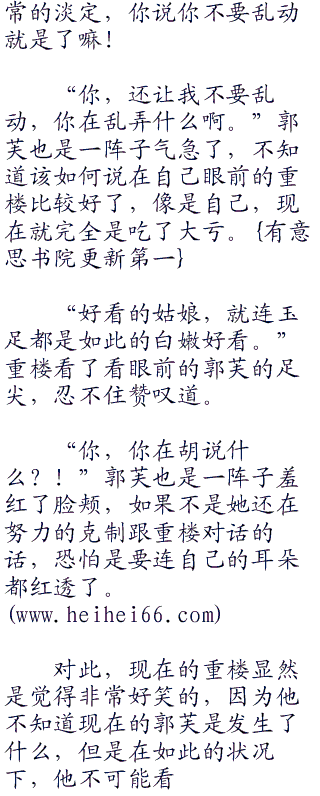 常的淡定，你说你不要乱动
就是了嘛！
“你，还让我不要乱
动，你在乱弄什么啊。”郭
芙也是一阵子气急了，不知
道该如何说在自己眼前的重
楼比较好了，像是自己，现
在就完全是吃了大亏。{有意
思书院更新第一}
“好看的姑娘，就连玉
足都是如此的白嫩好看。”
重楼看了看眼前的郭芙的足
尖，忍不住赞叹道。
“你，你在胡说什
么？！”郭芙也是一阵子羞
红了脸颊，如果不是她还在
努力的克制跟重楼对话的
话，恐怕是要连自己的耳朵
都红透了。
(www.heihei66.com)
对此，现在的重楼显然
是觉得非常好笑的，因为他
不知道现在的郭芙是发生了
什么，但是在如此的状况
下，他不可能看